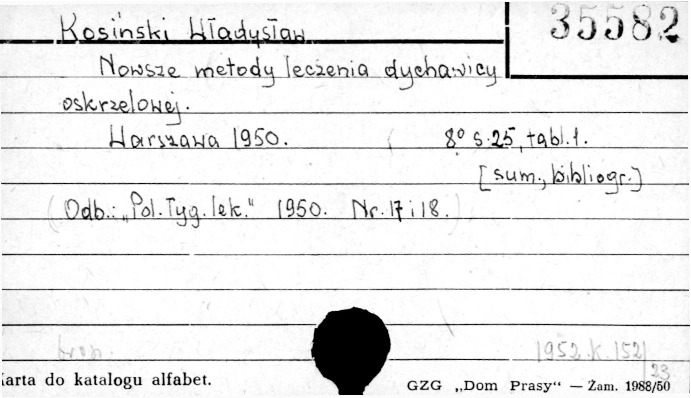 Kosiński Władysław
35582
Nowsze metody leczenia dychawicy
oskrzelowej.
Warszawa 1950. 8º s.25, tabl.1.
[sum., bibliogr.]
(Odb.: „Pol. Tyg. lek." 1950. Nr. 17 i 18.)
1952.K.152/23
Karta do katalogu alfabet.
GZG „Dom Prasy“ — Zam. 1988/50